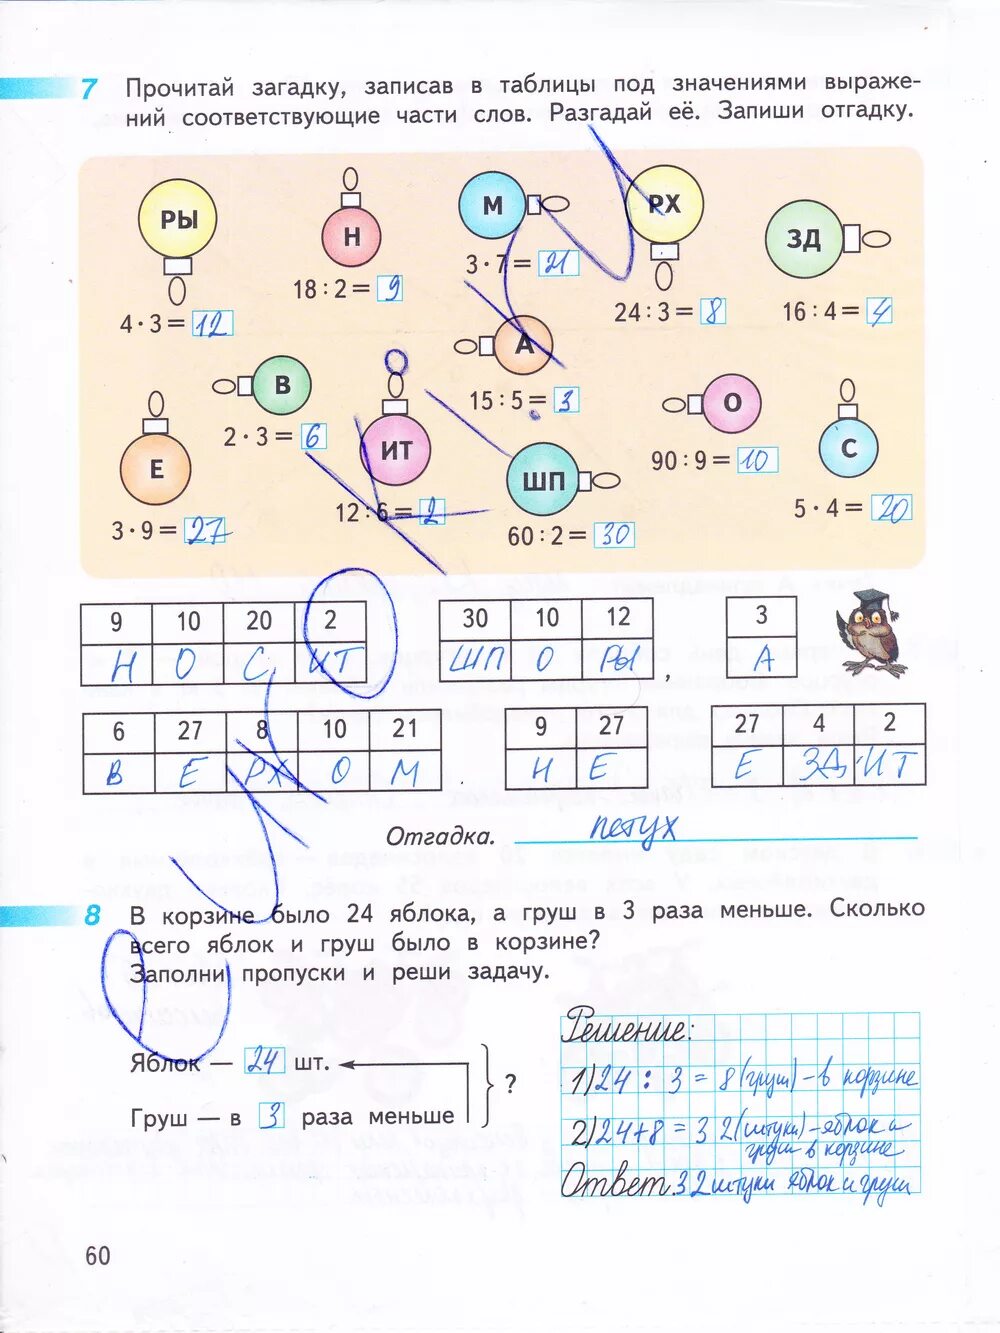 7 Прочитай загадку, записав в таблицы под значениями выраже-
ний соответствующие части слов. Разгадай её. Запиши отгадку.
РЫ Н М РХ ЗД
4 · 3 = 12
18 : 2 = 9
3 · 7 = 21
24 : 3 = 8
16 : 4 = 4
Е В ИТ А ШП О С
3 · 9 = 27
2 · 3 = 6
12 : 6 = 2
15 : 5 = 3
60 : 2 = 30
90 : 9 = 10
5 · 4 = 20
9 10 20 2 30 10 12 3
Н О С ИТ ШП О РЫ , А
6 27 8 10 21 9 27 27 4 2
В Е РХ О М Н Е Е ЗД ИТ
Отгадка. петух
8 В корзине было 24 яблока, а груш в 3 раза меньше. Сколько
всего яблок и груш было в корзине?
Заполни пропуски и реши задачу.
Яблок — 24 шт.
Груш — в 3 раза меньше
?
Решение:
1) 24 : 3 = 8 (груш) – в корзине
2) 24+8 = 32 (штуки) – яблок и
груш в корзине
Ответ. 32 штуки яблок и груш
60